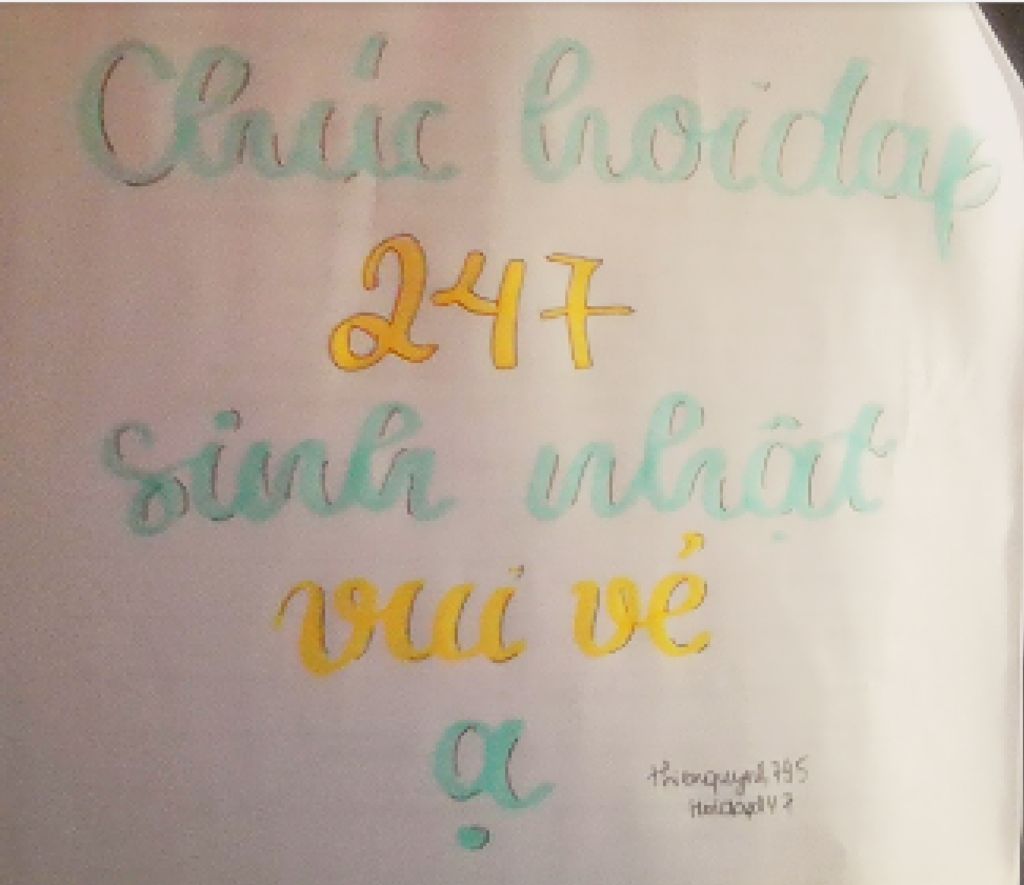 Chúc hoidap
247
sinh nhật
vui vẻ
ạ
thienquynh795
Hoidap247